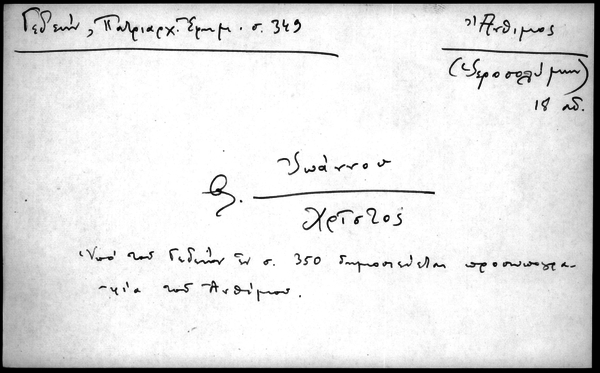 Γεδεών, Πατριαρχ. Έφημ. σ. 349
Άνθιμος
(Ιεροσολύμων)
18 αἰ.
Θ.
Ἰωάννου
Χρῖστος
Ὑπό τοῦ Γεδεών ἐν σ. 350 δημοσιεύεται προσωπογρα-
-φία τοῦ Ἀνθίμου.